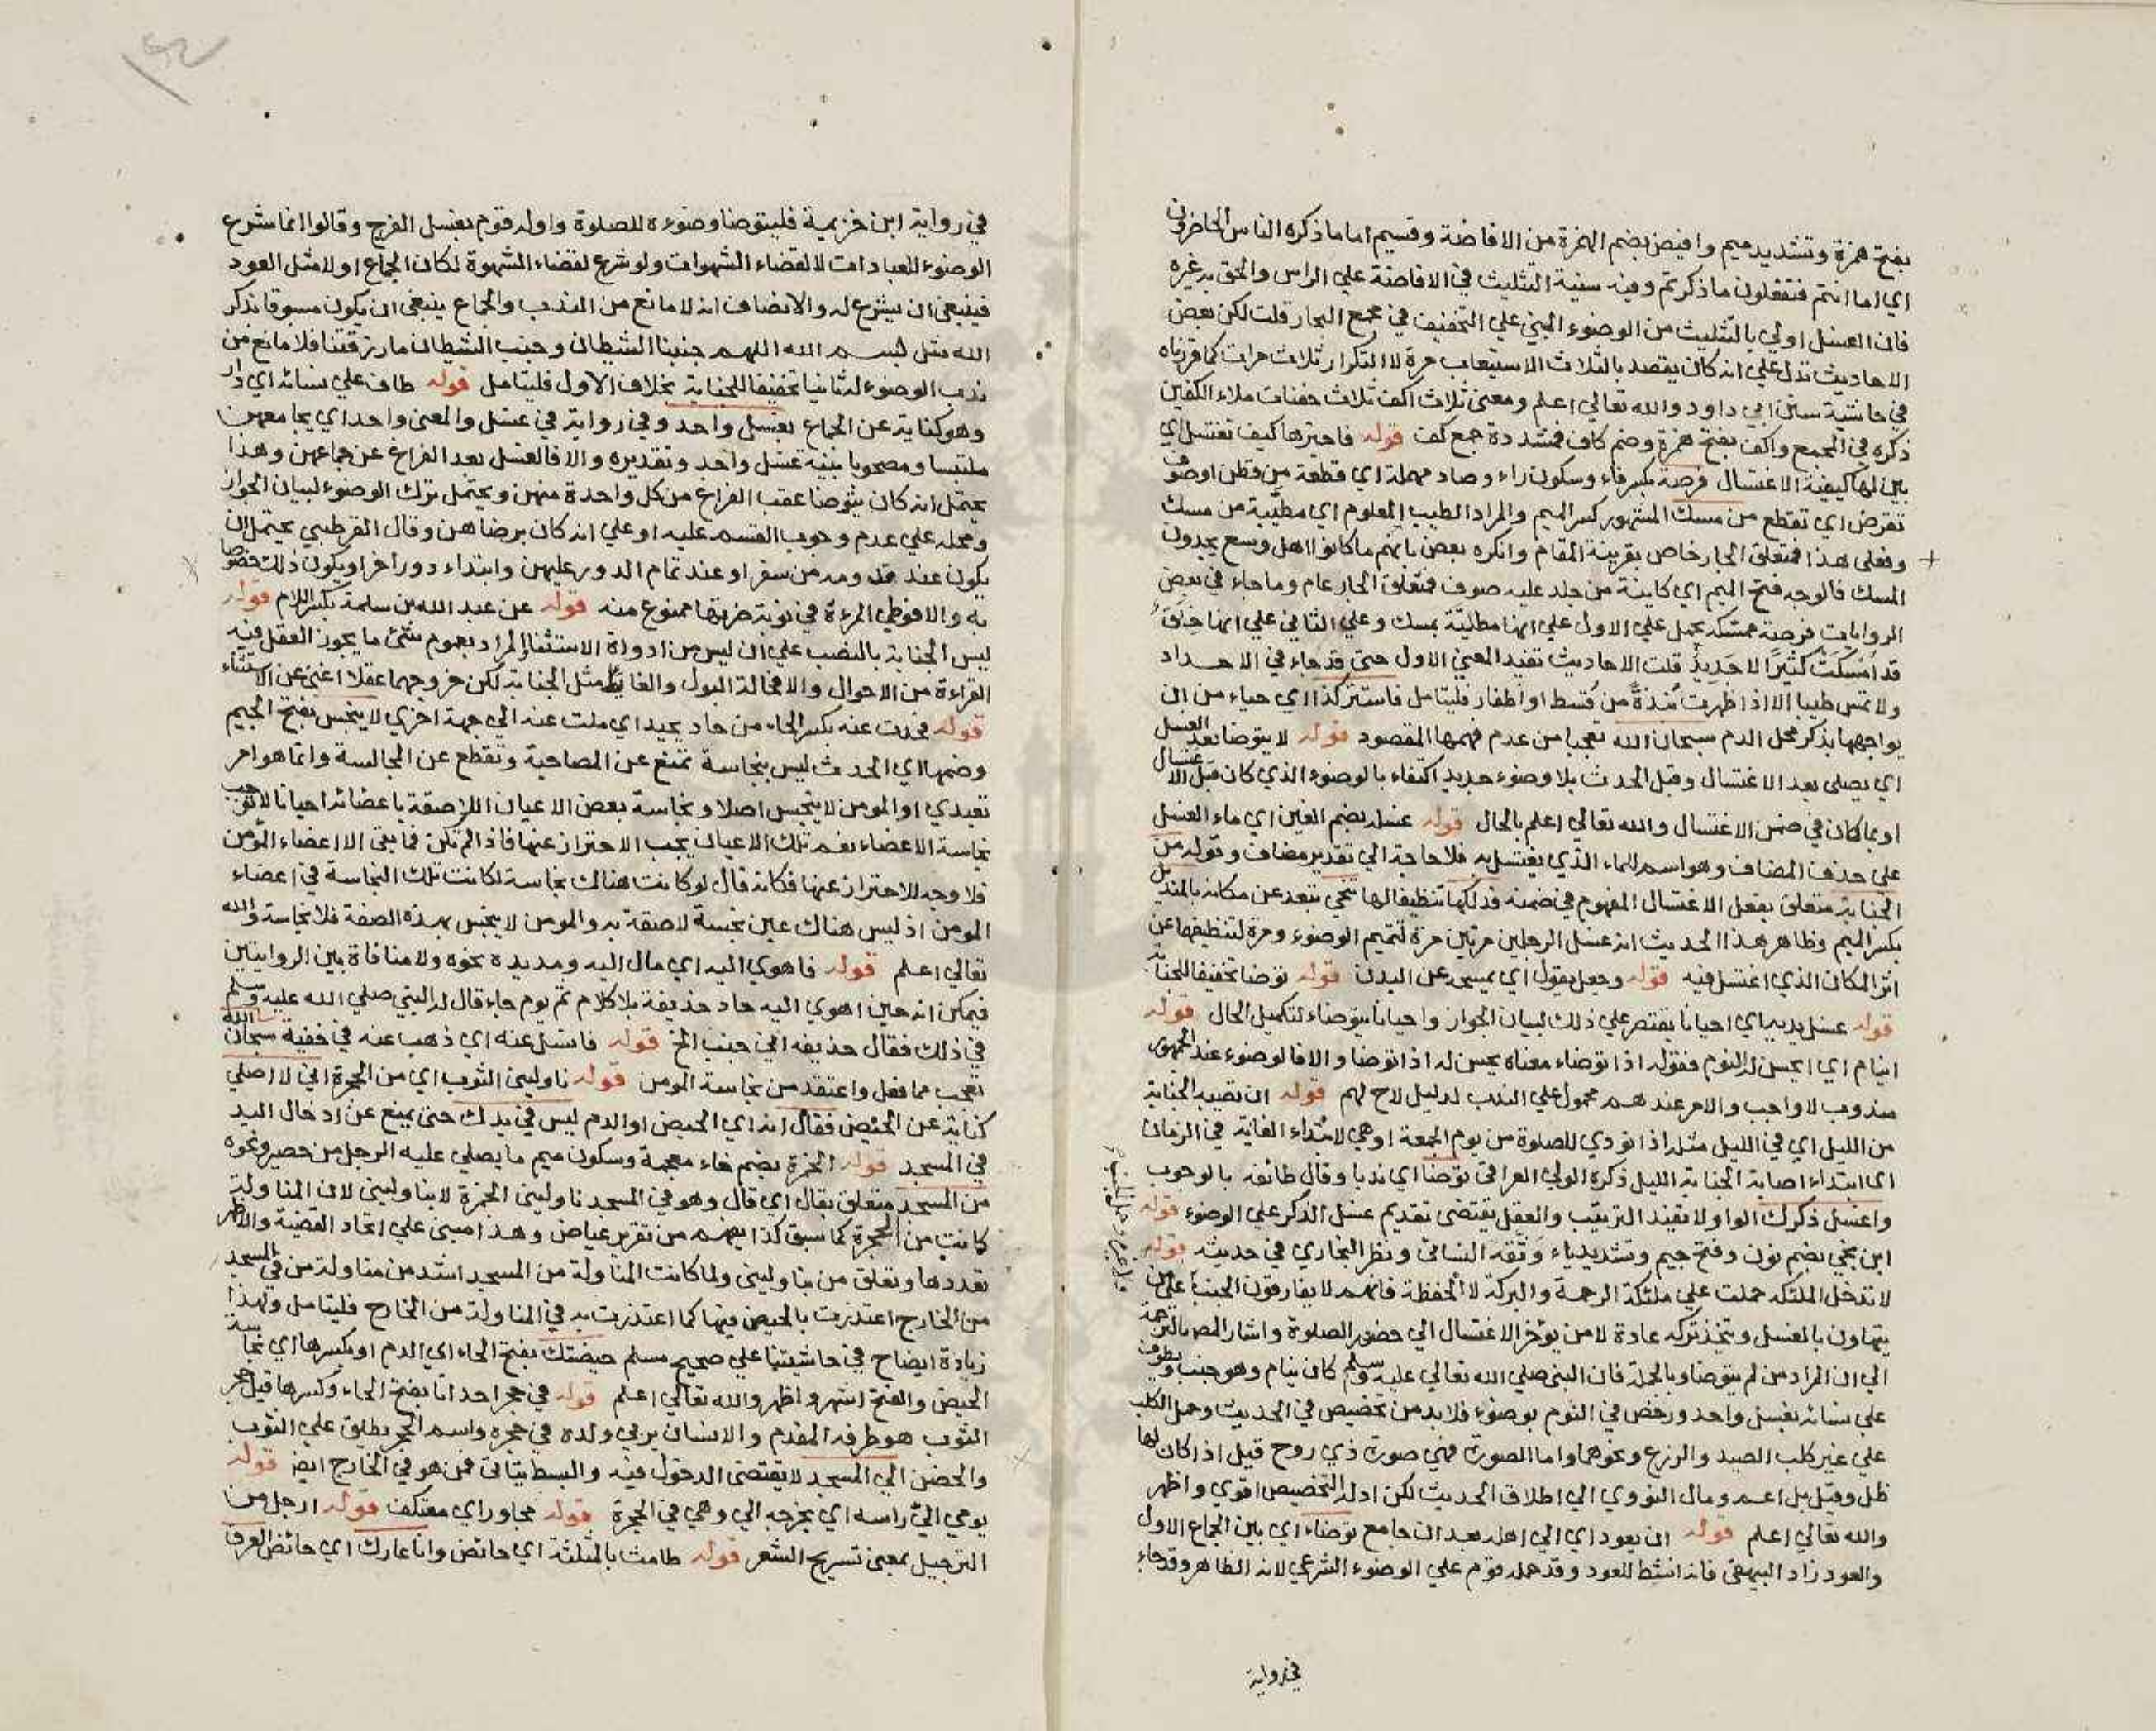 بفتح همزة وتشديد ميم وافيض بضم الهمزة من الافاضة وقسيم اما ما ذكره الناس الحاضرون
اي اما انتم فتفعلون ما ذكرتم وفيه سنية التثليث في الافاضة علي الراس والحق به غيره
فان الغسل اولي بالتثليث من الوضوء المبني علي التخفيف في مجمع البحار قلت لكن بعض
الاحاديث تدل علي انه كان يقصد بالثلاث الاستيعاب مرة لا التكرار ثلاث مرات كما قررناه
في حاشية سنن ابي داود والله تعالي اعلم ومعني ثلاث اكف ثلاث حفنات ملاء الكفين
ذكره في المجمع واكف بفتح همزة وضم كاف فمشددة جمع كف قوله فاخبرها كيف تغتسل اي
بين لها كيفية الاغتسال فرصة بكسر فاء وسكون راء وصاد مهملة اي قطعة من قطن او صوف
تقرض اي تقطع من مسك المشهور كسر الميم والمراد الطيب المعلوم اي مطيبة من مسك
وفعلي هذا فمتعلق الجار خاص بقرينة المقام وانكره بعض بانهم ما كانوا اهل وسع يجدون
المسك فالوجه فتح الميم اي كاينة من جلد عليه صوف فمتعلق الجار عام وما جاء في بعض
الروايات فرصة ممسكة يحمل علي الاول علي انها مطلية بمسك وعلي الثاني علي انها خرقة
قد امسكت كثيرا لا جديد قلت الاحاديث تفيد المعني الاول حتي قد جاء في الاحداد
ولا تمس طيبا الا اذا طهرت نبذة من قسط او اظفار فليتامل فاستتر كذا اي حياء من ان
يواجهها بذكر محل الدم سبحان الله تعجبا من عدم فهمها المقصود قوله لا يتوضا بعد الغسل
اي يصلي بعد الاغتسال وقبل الحدث بلا وضوء جديد اكتفاء بالوضوء الذي كان قبل الاغتسال
او بما كان في ضمن الاغتسال والله تعالي اعلم بالحال قوله غسله بضم الغين اي ماء الغسل
علي حذف المضاف وهو اسم للماء الذي يغتسل به فلا حاجة الي تقدير مضاف وقوله من
الجنابة متعلق بفعل الاغتسال المفهوم في ضمنه فدلكها تنظيفا لها تنحي تبعد عن مكانه بالمنديل
بكسر الميم وظاهر هذا الحديث انه غسل الرجلين مرتين مرة لتتميم الوضوء ومرة لتنظيفها عن
اثر المكان الذي اغتسل فيه قوله وجعل يقول اي يمسح عن البدن قوله توضا تخفيفا للجنابة
قوله غسل يديه اي احيانا يقتصر علي ذلك لبيان الجواز واحيانا يتوضاء لتكميل الحال قوله
اينام اي ايحسن له النوم فقوله اذا توضاء معناه يحسن له اذا توضا والا فالوضوء عند الجمهور
مندوب لا واجب والامر عندهم محمول علي الندب لدليل لاح لهم قوله ان تصيبه الجنابة
من الليل اي في الليل مثله اذا نودي للصلوة من يوم الجمعة او هي لابتداء الغاية في الزمان
اي ابتداء اصابة الجنابة الليل ذكره الولي العراقي توضا اي ندبا وقال طائفه بالوجوب
واغسل ذكرك الواو لا تفيد الترتيب والعقل يقتضي تقديم غسل الذكر علي الوضوء قوله
ابن نجي بضم نون وفتح جيم وتشديد ياء وثقه النسائي ونظر البخاري في حديثه قوله
لا تدخل الملئكه حملت علي ملئكة الرحمة والبركة لا الحفظة فانهم لا يفارقون الجنب علي من
يتهاون بالغسل ويتخذ تركه عادة لا من يؤخر الاغتسال الي حضور الصلوة واشار المص بالترجمة
الي ان المراد من لم يتوضا وبالجملة فان النبي صلي الله تعالي عليه وسلم كان ينام وهو جنب ويطوف
علي نسائه بغسل واحد ورخص في النوم بوضوء فلا بد من تخصيص في الحديث وحمل الكلب
علي غير كلب الصيد والزرع ونحوهما واما الصورة فهي صورة ذي روح قيل اذا كان لها
ظل وقيل بل اعم ومال النووي الي اطلاق الحديث لكن ادلة التخصيص اقوي واظهر
والله تعالي اعلم قوله ان يعود اي الي اهله بعد ان جامع توضاء اي بين الجماع الاول
والعود زاد البيهقي فانه انشط للعود وقد حمله قوم علي الوضوء الشرعي لانه الظاهر وقد جاء
في رواية
في رواية ابن خزيمة فليتوضا وضوءه للصلوة واوله قوم بغسل الفرج وقالوا انما شرع
الوضوء للعبادات لا لقضاء الشهوات ولو شرع لقضاء الشهوة لكان الجماع اولا مثل العود
فينبغي ان يشرع له والانصاف انه لا مانع من الندب والجماع ينبغي ان يكون مسبوقا بذكر
الله مثل بسم الله اللهم جنبنا الشيطان وجنب الشيطان ما رزقتنا فلا مانع من
ندب الوضوء له ثانيا تخفيفا للجنابة بخلاف الاول فليتامل قوله طاف علي نسائه اي دار
وهو كناية عن الجماع بغسل واحد وفي رواية في غسل والمعني واحد اي يجامعهن
ملتبسا ومصحوبا بنية غسل واحد وتقديره والا فالغسل بعد الفراغ عن جماعهن وهذا
يحتمل انه كان يتوضا عقب الفراغ من كل واحدة منهن ويحتمل ترك الوضوء لبيان الجواز
ومحله علي عدم وجوب القسم عليه او علي انه كان برضاهن وقال القرطبي يحتمل ان
يكون عند قدومه من سفر او عند تمام الدور عليهن وابتداء دور اخر او يكون ذلك خصوصا
به والا فوطي المرءة في نوبة ضرتها ممنوع منه قوله عن عبد الله بن سلمة بكسر اللام قوله
ليس الجنابة بالنصب علي ان ليس من ادوات الاستثنا والمراد بعموم شئ ما يجوز العقل فيه
القراءة من الاحوال والا فحالة البول والغايط مثل الجنابة لكن خروجهما عقلا اغني عن الاستثناء
قوله فحدت عنه بكسر الحاء من حاد يحيد اي ملت عنه الي جهة اخري لا ينجس بفتح الجيم
وضمها اي الحدث ليس بنجاسة تمنع عن المصاحبة وتقطع عن المجالسة وانما هو امر
تعبدي او المومن لا ينجس اصلا ونجاسة بعض الاعيان اللاصقة باعضائه احيانا لا توجب
نجاسة الاعضاء نعم تلك الاعيان يجب الاحتراز عنها فاذا لم تكن فما بقي الا اعضاء المؤمن
فلا وجه للاحتراز عنها فكانه قال لو كانت هناك نجاسة لكانت تلك النجاسة في اعضاء
المومن اذ ليس هناك عين نجسة لاصقة به والمومن لا ينجس بهذه الصفة فلا نجاسة والله
تعالي اعلم قوله فاهوي اليه اي مال اليه ومد يده نحوه ولا منافاة بين الروايتين
فيمكن انه حين اهوي اليه حاد حذيفة بلا كلام ثم يوم جاء قال له النبي صلي الله عليه وسلم
في ذلك فقال حذيفه اني جنب الخ قوله فانسل عنه اي ذهب عنه في خفية سبحان الله
تعجب مما فعل واعتقد من نجاسة المومن قوله ناوليني الثوب اي من الحجرة اني لا اصلي
كناية عن الحيض فقال انه اي الحيض او الدم ليس في يدك حتي يمنع عن ادخال اليد
في المسجد قوله الخمرة بضم خاء معجمة وسكون ميم ما يصلي عليه الرجل من حصير ونحوه
من المسجد متعلق بقال اي قال وهو في المسجد ناوليني الخمرة لا بناوليني لان المناولة
كانت من الحجرة كما سبق كذا يفهم من تقرير عياض وهذا مبني علي اتحاد القضية والاظهر
تعددها وتعلق من بناوليني ولما كانت المناولة من المسجد اشد من مناولة من في المسجد
من الخارج اعتذرت بالحيض فيها كما اعتذرت به في المناولة من الخارج فليتامل ولهذا
زيادة ايضاح في حاشيتنا علي صحيح مسلم حيضتك بفتح الحاء اي الدم او بكسرها اي نجاسة
الحيض والفتح اشهر واظهر والله تعالي اعلم قوله في حجر احدانا بفتح الحاء وكسرها قيل حجر
الثوب هو طرفه المقدم والانسان يربي ولده في حجره واسم الحجر يطلق علي الثوب
والحضن الي المسجد لا يقتضي الدخول فيه والبسط يتاتي ممن هو في الخارج ايض قوله
يومي الي راسه اي يخرجه الي وهي في الحجرة قوله مجاور اي معتكف قوله ارجل من
الترجيل بمعني تسريح الشعر قوله طامث بالمثلثة اي حائض وانا عارك اي حائض